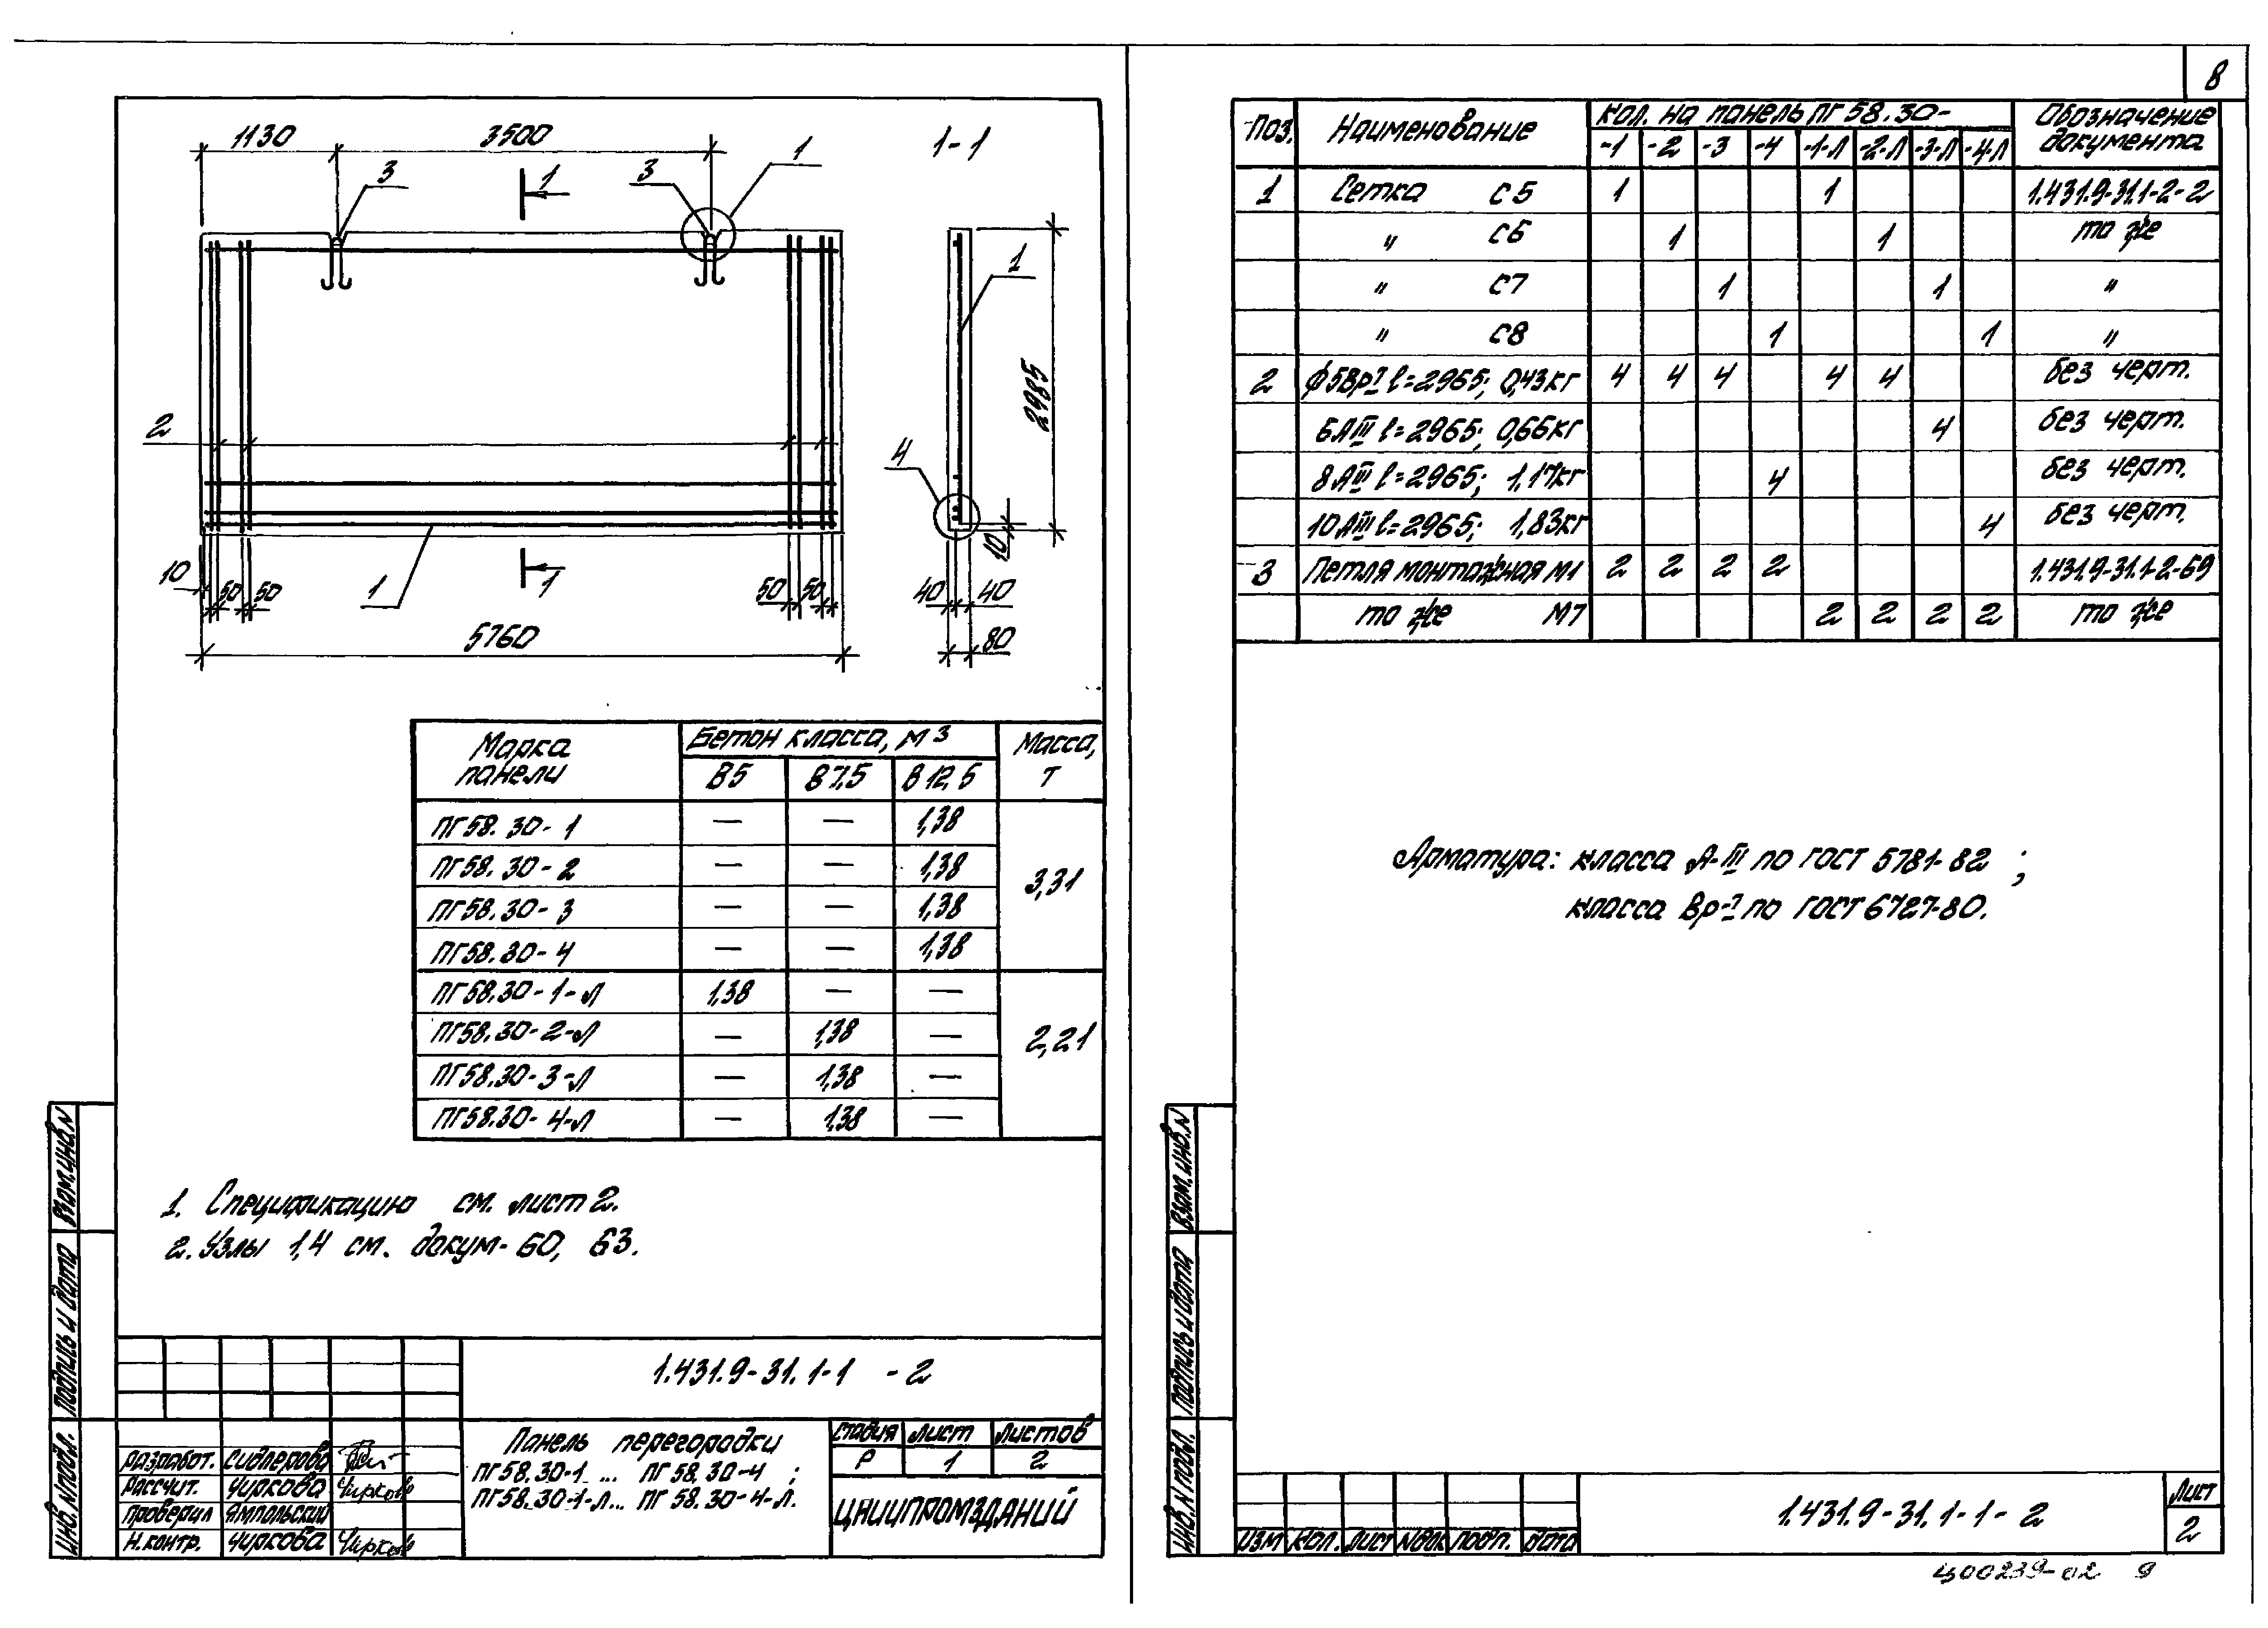 8
1130 3500 1-1
3 3 1
1
1
2985
2
4
10
10 50 50 1 1 50 50 40 40
5760 80
Марка панели Бетон класса, м3 Масса, т
В5 В7,5 В12,5
ПГ58.30-1 — — 1,38
ПГ58.30-2 — — 1,38
3,31
ПГ58.30-3 — — 1,38
ПГ58.30-4 — — 1,38
ПГ58.30-1-Л 1,38 — —
ПГ58.30-2-Л — 1,38 —
2,21
ПГ58.30-3-Л — 1,38 —
ПГ58.30-4-Л — 1,38 —
1. Спецификацию см. лист 2.
2. Узлы 1,4 см. докум-60, 63.
Взам.инв.N
Подпись и дата
Инв.N подл.
1.431.9-31.1-1 -2
Разработ. Сидлерова
Рассчит. Чиркова Чирков
Проверил Ямпольский
Н.контр. Чиркова Чирков
Панель перегородки
ПГ58.30-1 ... ПГ58.30-4 ;
ПГ58.30-1-Л... ПГ 58.30-4-Л.
Стадия Лист Листов
Р 1 2
ЦНИИПРОМЗДАНИЙ
Поз. Наименование Кол. на панель ПГ58.30- Обозначение документа
-1 -2 -3 -4 -1-Л -2-Л -3-Л -4-Л
1 Сетка С5 1 1 1.431.9-31.1-2-2
" С6 1 1 то же
" С7 1 1 "
" С8 1 1 "
2 Ф5ВрI l=2965; 0,43кг 4 4 4 4 4 без черт.
6АIII l=2965; 0,66кг 4 без черт.
8АIII l=2965; 1,17кг 4 без черт.
10АIII l=2965; 1,83кг 4 без черт.
3 Петля монтажная М1 2 2 2 2 1.431.9-31.1-2-69
то же М7 2 2 2 2 то же
Арматура: класса А-III по ГОСТ 5781-82 ;
класса Вр-I по ГОСТ 6727-80.
Взам.инв.N
Подпись и дата
Инв.N подл.
Изм Кол. Лист Nдок Подп. Дата
1.431.9-31.1-1-2
Лист
2
Ц00239-02 9